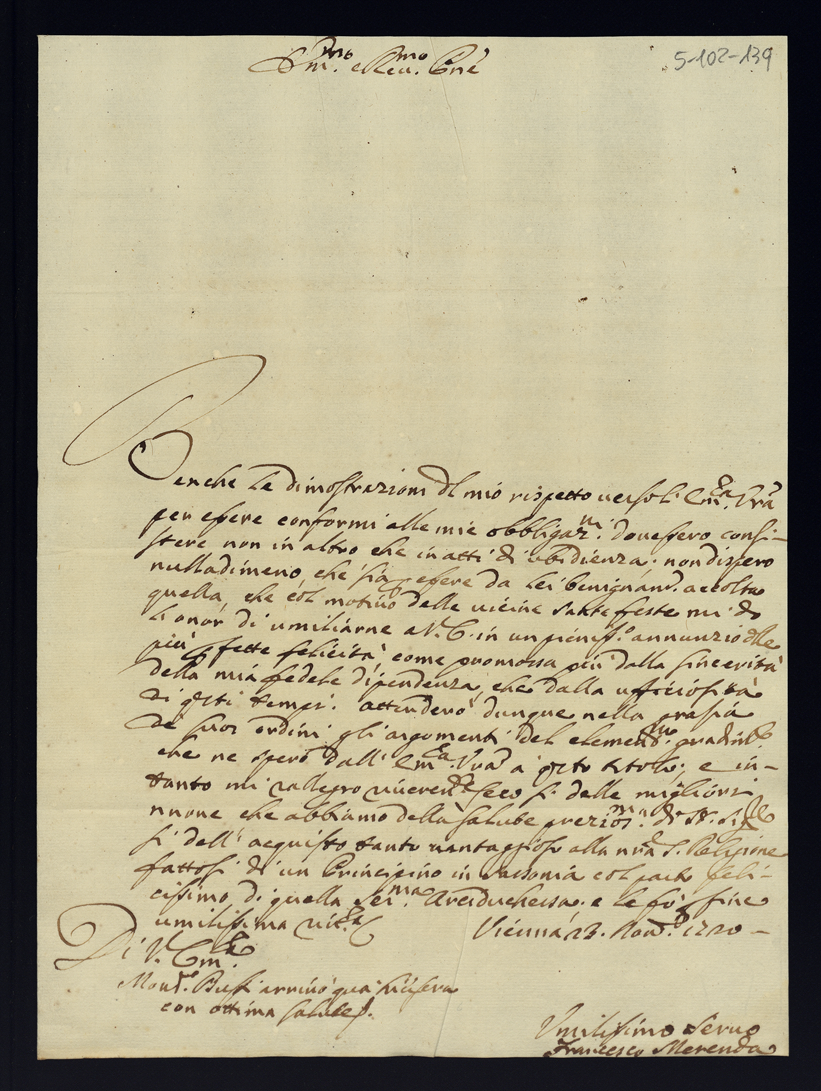 Em.mo e Rev.mo Pñe
5-102-139
Benche le dimostrazioni del mio rispetto verso l'Em.za Vrã
per essere conformi alle mie obbligaz.ni dovessero consi-
stere non in altro che in atti di ubidienza; non dispero
nulladimeno, che sia p essere da lei benignam.e accolta
quella, che col motivo delle vicine Sante feste mi dò
l'onor di umiliarne a V. E. in un pieniss.o annunzio delle
più pfette felicità, come promossa più dalla sincerità
della mia fedele dipendenza, che dalla ufficiosità
di q̃sti tempi. Attenderò dunque nella grazia
de' suoi ordini gli argomenti del clementiss.mo gradim.to,
che ne spero dall'Em.za Vrã a q̃sto titolo; e in-
tanto mi rallegro seco sì delle migliori
nuove che abbiamo della salute prezios.ma di N. Sig.re
sì dell'acquisto tanto vantaggioso alla nrã S. Religione
fattosi di un Principino in Sassonia col parto feli-
cissimo di quella Ser.ma Arciduchessa. e le fò fine
umilissima
Vienna 23. Nov. 1720 -
Di V. Em.za
Mons.r arrivò qua
con ottima salute.
Umilissimo Servo
Francesco Merenda